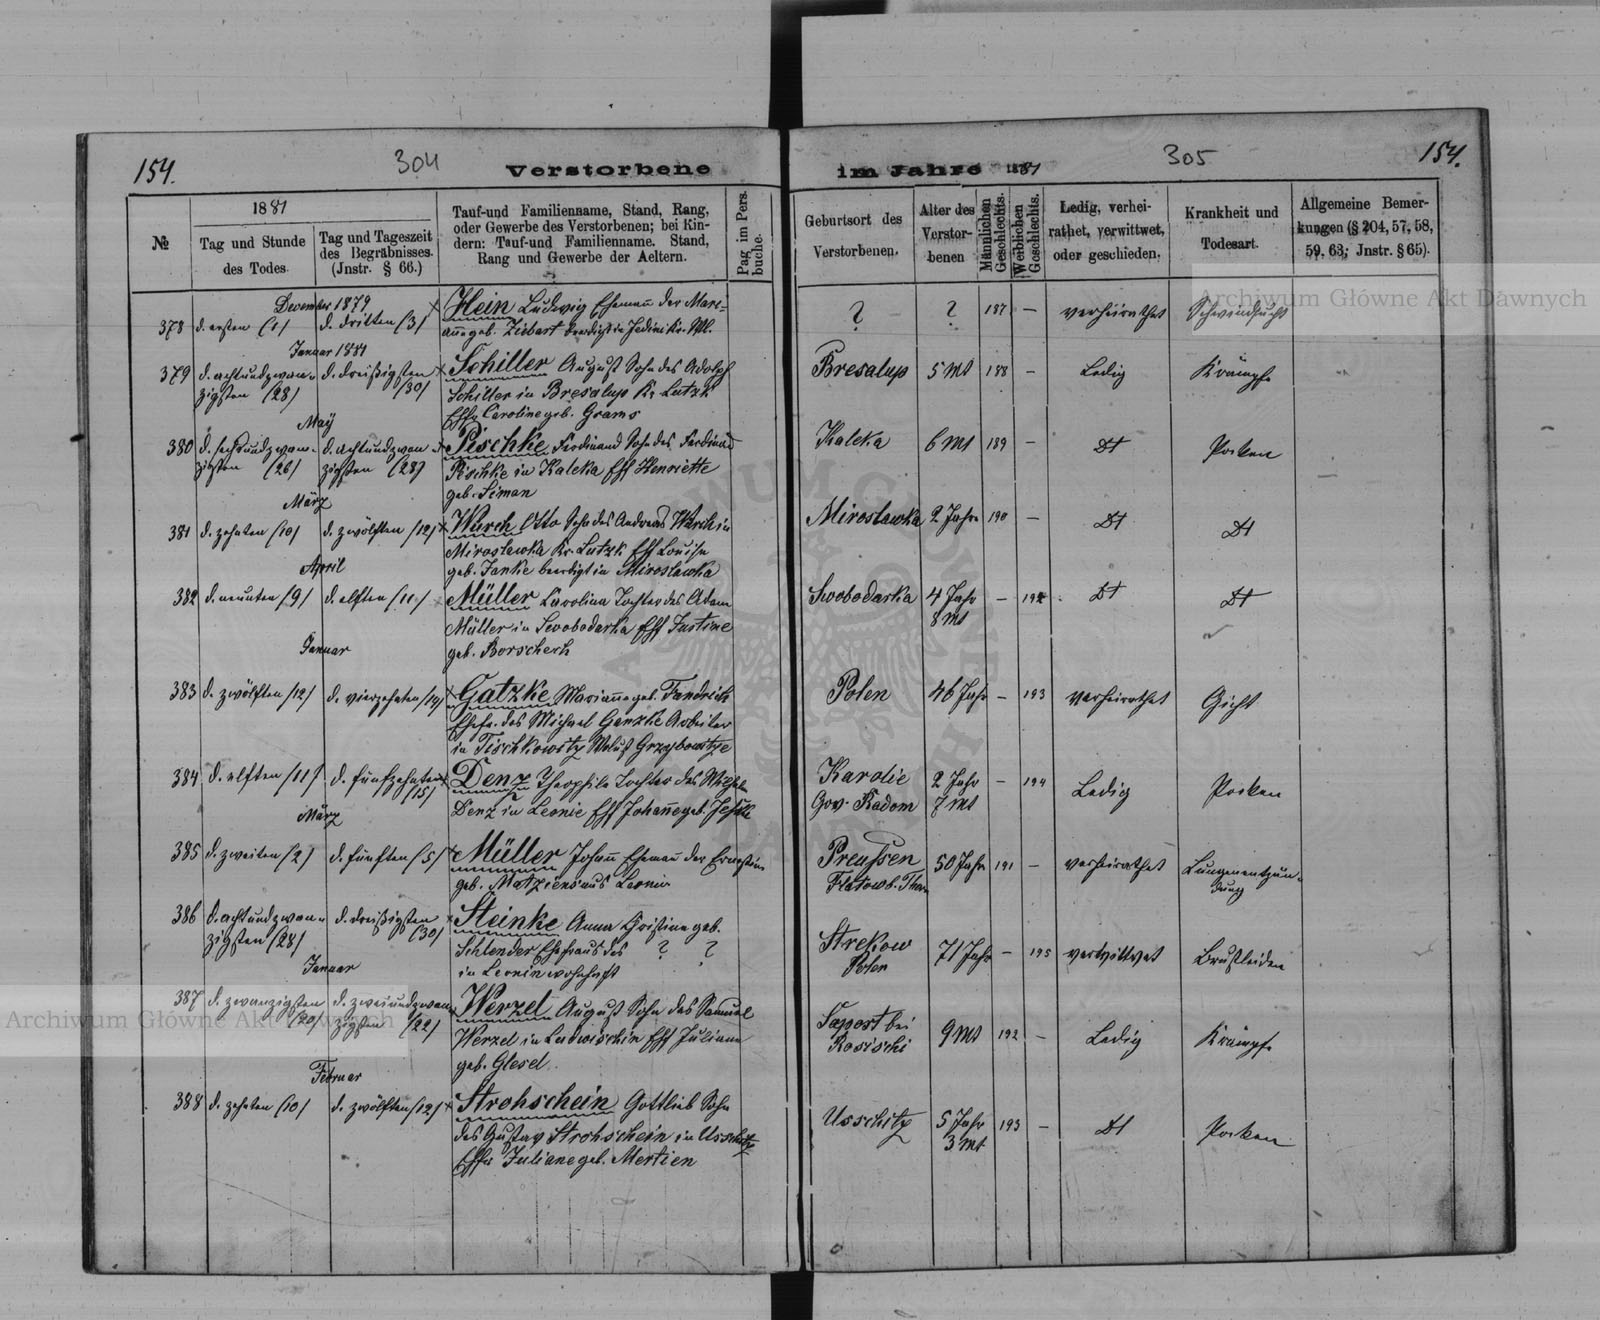 154. 304 Verstorbene
im Jahre 1881 305 154.
№
1881
Tag und Stunde
des Todes.
Tag und Tageszeit
des Begräbnisses.
(Jnstr. § 66.)
Tauf-und Familienname, Stand, Rang,
oder Gewerbe des Verstorbenen; bei Kin-
dern: Tauf-und Familienname. Stand,
Rang und Gewerbe der Aeltern.
Pag im Pers.
buche.
Geburtsort des
Verstorbenen.
Alter des
Verstor-
benen
Männlichen
Geschlechts.
Weiblichen
Geschlechts.
Ledig, verhei-
rathet, verwittwet,
oder geschieden.
Krankheit und
Todesart.
Allgemeine Bemer-
kungen (§ 204, 57, 58,
59, 63; Jnstr. § 65).
Archiwum Główne Akt Dawnych
December 1879
378 d. ersten /1/ d. dritten /3/ Hein Ludwig Ehemañ der Mari-
añe geb. Ziebart ? ? 187 — verheirathet Schwindsucht
Januar 1881
379 d. achtundzwan- d. dreißigsten Schiller August Sohn des Adolf Bresalup 5 Mt 188 — Ledig Krämpfe
zigsten /28/ /30/ Schiller in Bresalup Kr. Lutzk
Caroline geb. Grams
May
380 d. sechsundzwan- d. achtundzwan- Pischke Ferdinand Sohn des Ferdinand Kaleka 6 Mt 189 — Dt Pocken
zigsten /26/ zigsten /28/ Pischke in Kaleka Eff Henriette
geb. Siman
März
381 d. zehnten /10/ d. zwölften /12/ Wurch Otto Sohn des Andreas Wurch in Mirosławka 2 Jahre 190 — Dt Dt
Mirosławka Kr. Lutzk Eff Louise
geb. Janke beerdigt in Mirosławka
April
382 d. neunten /9/ d. elften /11/ Müller Karolina Tochter des Adam Swobodarka 4 Jahr — 192 Dt Dt
8 Mt
Müller in Swobodarka Eff Justine
geb. Borscherh
Januar
383 d. zwölften /12/ d. vierzehnten /14/ Gatzke Mariañe geb. Fandrich Polen 46 Jahr — 193 verheirathet Gicht
Ehefr. des Michael Ganzke Arbeiter
in Tischkowitz Grzybowitze
384 d. elften /11/ d. fünfzehnten Denz Theophile Tochter des Wilhelm Karolie 2 Jahr — 194 Ledig Pocken
/15/ Denz in Leonie Eff Johañe geb. Gov. Radom 7 Mt
März
385 d. zweiten /2/ d. fünften /5/ Müller Johañ Ehemañ der Ernestine Preussen 50 Jahr 191 — verheirathet Lungenentzün-
dung
geb. Matziens aus Leonin
386 d. achtundzwan- d. dreißigsten Steinke Anna Christine geb. Strekow 71 Jahr — 195 verwittwet Brustleiden
zigsten /28/ /30/ Schlender Ehefrau des ? ? Polen
in Leonin wohnhaft
Januar
387 d. zwanzigsten d. zweiundzwan- Werzel August Sohn des Samuel Sapost bei 9 Mt 192 — Ledig Krämpfe
/20/ zigsten /22/ Werzel in Ludwischin Eff Juliane Rosischi
geb. Glesel.
Archiwum Główne Akt Dawnych
Februar
388 d. zehnten /10/ d. zwölften /12/ Strohschein Gottlieb Sohn Usschitz 5 Jahr 193 — Dt Pocken
3 Mt
des Gustav Strohschein in Usschitz
Juliane geb. Mertien